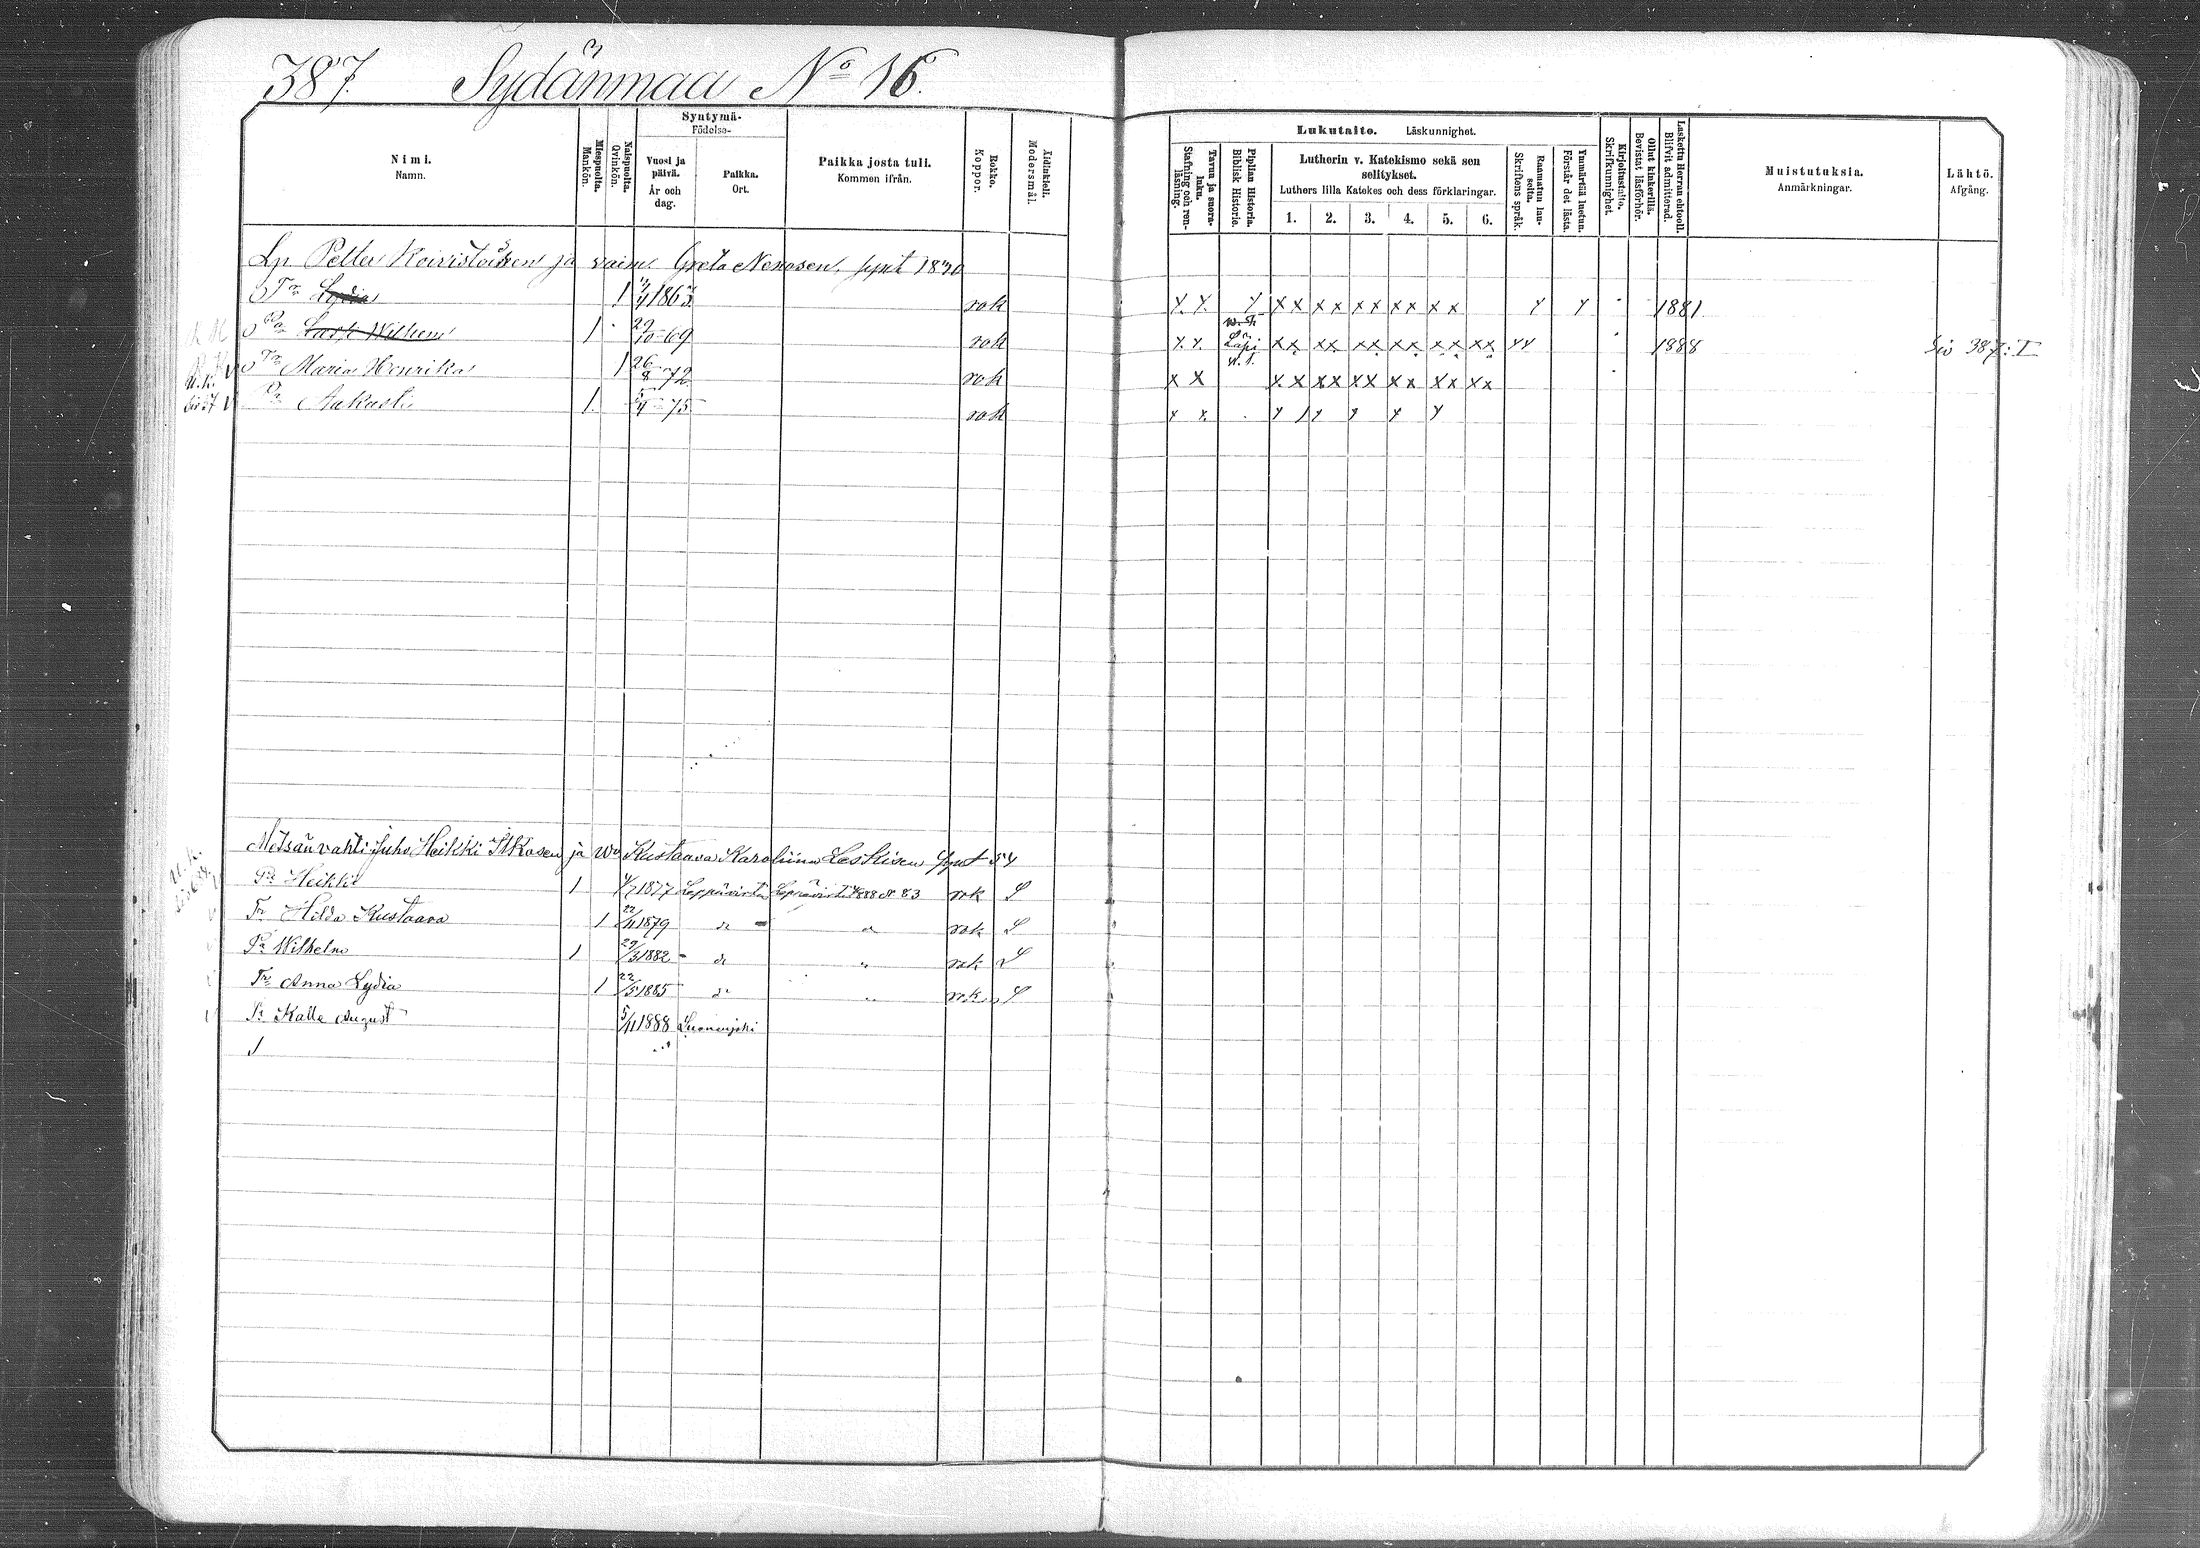 387. Sydänmaa No 16.
Syntymä-
Födelse-
Nimi.
Namn.
Miespuolta.
Mankön.
Naispuolta.
Qvinkön.
Vuosi ja päivä.
År och dag.
Paikka.
Ort.
Paikka josta tuli.
Kommen ifrån.
Rokko.
Koppor.
Äidinkieli.
Modersmål.
Lukutaito. Läskunnighet.
Tavuu ja suora-luku.
Stafning och ren-läsning.
Piplian Historia.
Biblisk Historie.
Lutherin v. Katekismo sekä sen selitykset.
Luthers lilla Katekes och dess förklaringar.
1. 2. 3. 4. 5. 6.
Raamatun lau-seita.
Skriftens språk.
Ymmärtää luetun.
Förstår det lästa.
Kirjoitustaito.
Skrifkunnighet.
Ollut kinkerillä.
Bevistat läsförhör.
Laskettu Herran ehtooll.
Blifvit admitterad.
Muistutuksia.
Anmärkningar.
Lähtö.
Afgång.
Lp. Petter Koivistoisen ja vaim. Greta Nenosen, synt 1830
Tr Lydia 1 1863 rok x x x x x x x x x x x x 1881
Pa Wilhem 1 29/10 69 rok x x x x x x x x x x x x x x 1888 siv 387:I
Tr Maria Henrika 1 26/8 72 rok x x x x x x x x x x x x x x
Pa Aukusti 1 75 rok x x
Metsänvahti Juho Heikki Itkosen ja Wo Kustaava Karoliina Leskisen synt 54
Pr Heikki 1 1877 Leppävirta Leppävirta 1888 N 83 rok S
Tr Hilda Kustaava 1 22/11 1879 do " rok S
Pr Wilhelm 1 29/3 1882 do " rok S
Tr Anna Lydia 1 22/5 1885 do " rok S
Pr Kalle August 5/11 1888 Suonenjoki